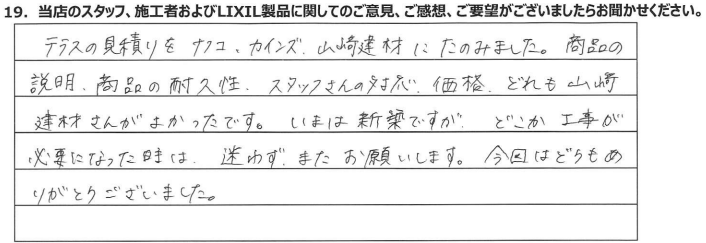 19. 当店のスタッフ、施工者およびLIXIL製品に関してのご意見、ご感想、ご要望がございましたらお聞かせください。
テラスの見積りを ナフコ、カインズ、山崎建材 にたのみました。商品の
説明、商品の耐久性、スタッフさんの対応、価格、どれも山崎
建材さんがよかったです。いまは新築ですが、どこか工事が
必要になった時は、迷わず、またお願いします。今回はどうもあ
りがとうございました。